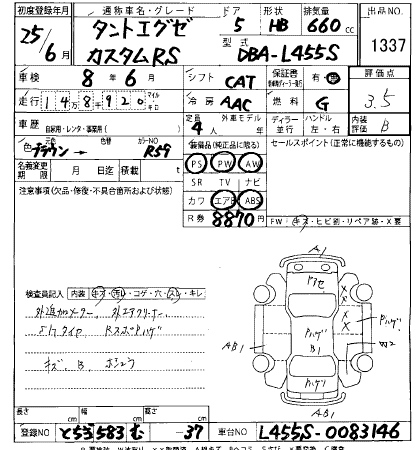 初度登録年月 通称車名・グレード ドア 形状 排気量 出品NO.
25年6月 タントエグゼ カスタムRS 5 HB 660cc 1337
型式 DBA-L455S
車検 8年6月 シフト CAT 保証書 有・無 評価点
走行 148,920 マイル キロ 冷房 AAC 燃料 G 3.5
車歴 自家用・レンタ・事業用( ) 定員 4人 外車モデル ディーラー 並行 ハンドル 左・右 内装評価 B
色 元色 ブラウン→ 色替 カラーNO R59 装備品(純正品に限る) セールスポイント(正常に機能するもの)
名義変更期限 月 日迄 積載 t PS PW AW
注意事項(欠品・修復・不具合箇所および状態) SR TV ナビ
カワ エアB ABS
R券 8870円 FW キズ・ヒビ割・リペア跡・X要
検査員記入 内装 キズ・汚れ・コゲ・穴・スレ・キレ
外追加メーター 外エアクリーナー
キズ B
A1
アセ
Pハゲ
B1
AB1
W2
AB1
長さ cm 幅 cm 高さ cm
登録NO 583 む -37 車台NO L455S-0083146